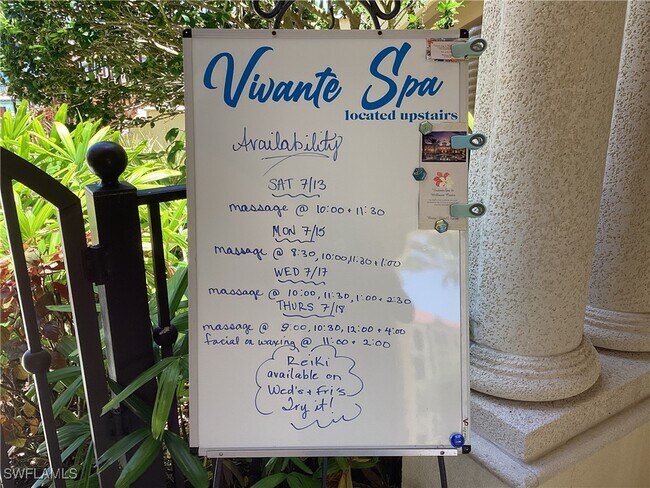 Vivante Spa
located upstairs
Availability
SAT 7/13
massage @ 10:00 + 11:30
MON 7/15
massage @ 8:30, 10:00, 11:30 + 1:00
WED 7/17
massage @ 10:00, 11:30, 1:00 + 2:30
THURS 7/18
massage @ 9:00, 10:30, 12:00 + 4:00
facial or waxing @ 11:00 + 2:00
Reiki
available on
Wed's + Fri's
Try it!
SWFLAMLS